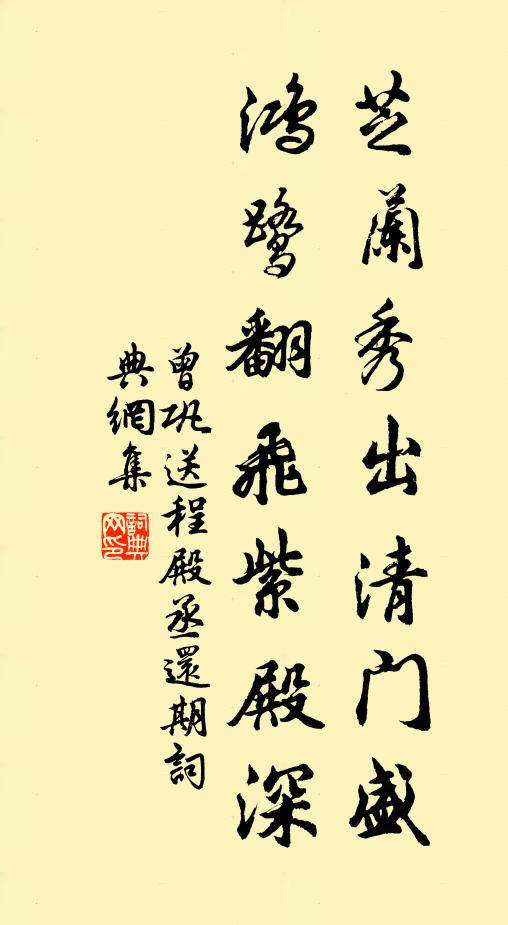 芝蘭秀出清門盛
鴻鷺翻飛紫殿深
曾巩送程殿丞還期詞
典網集
詞典网印